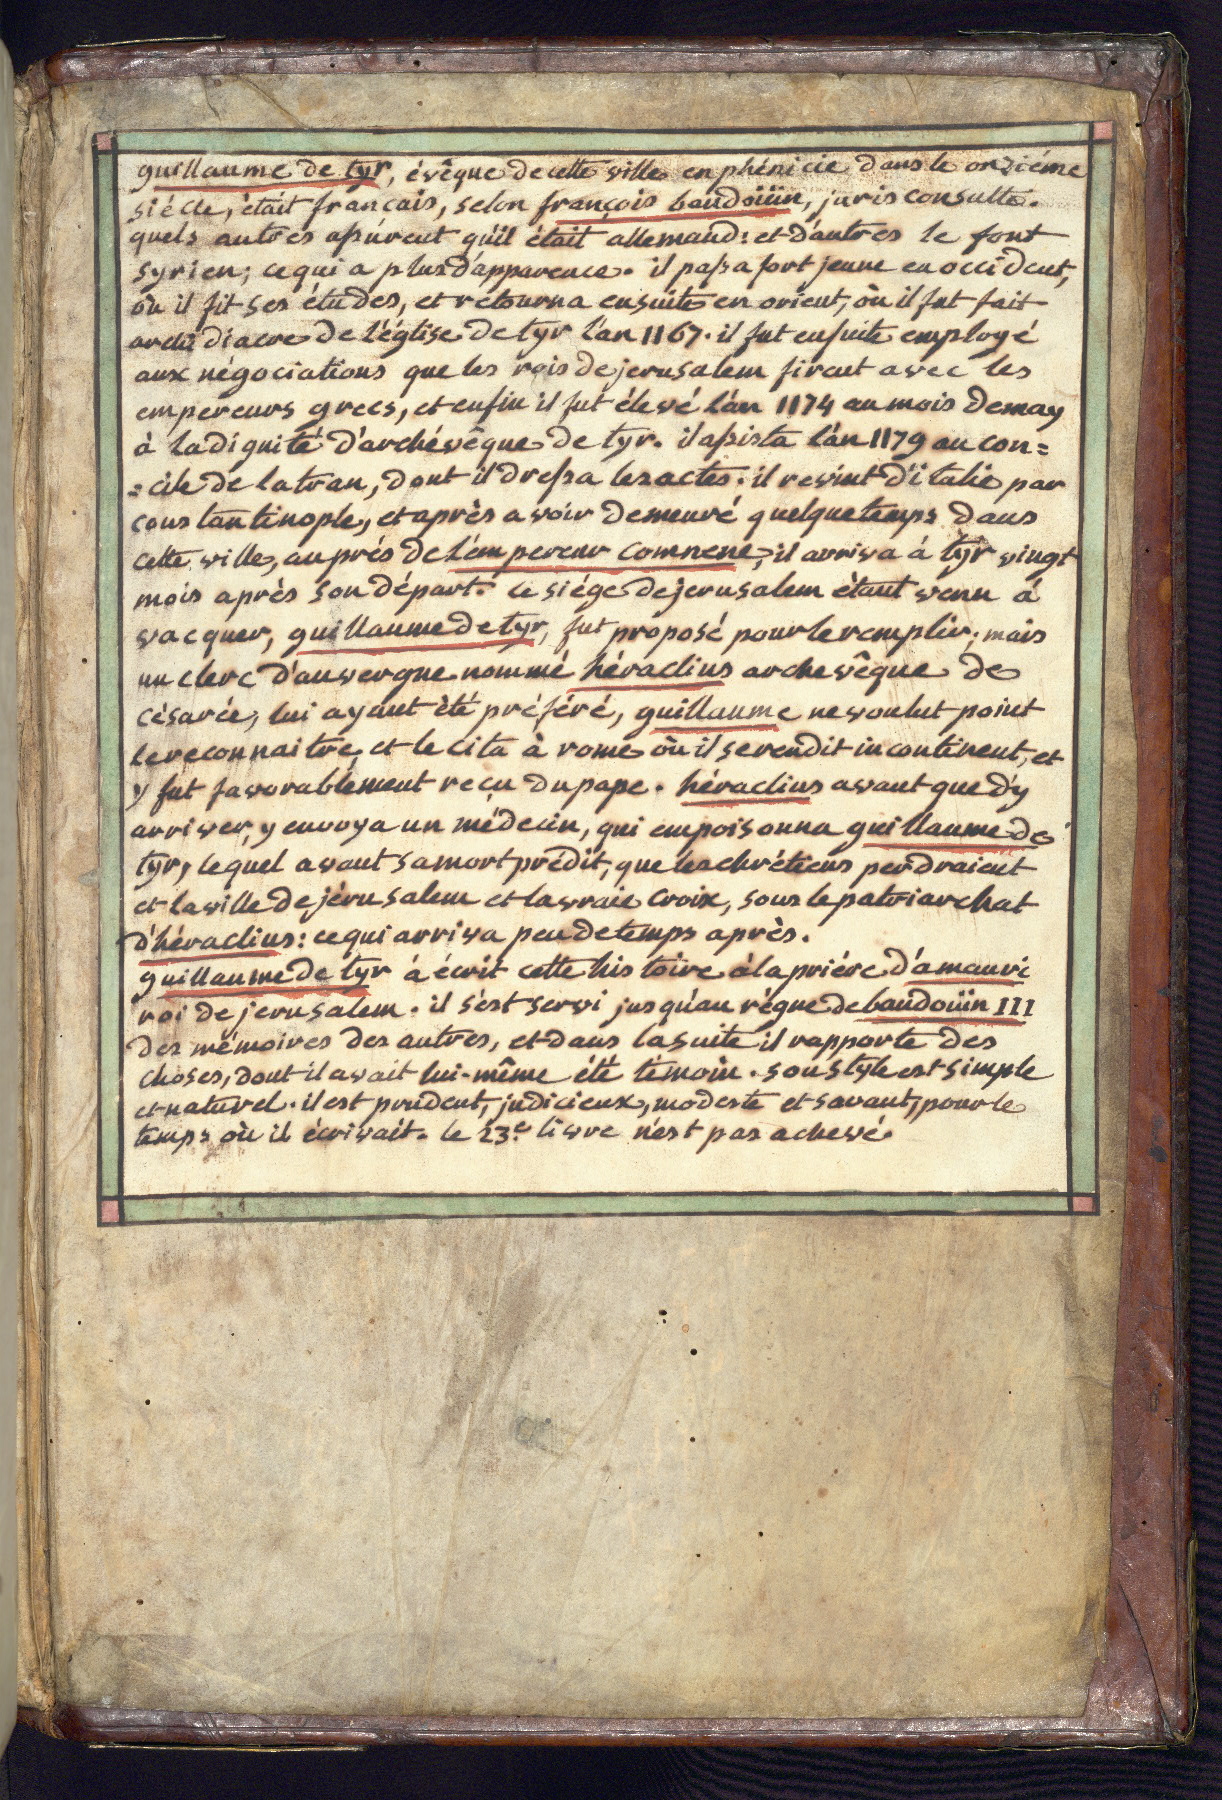 guillaume de tyr, évêque de cette ville en phénicie dans le onziéme
siécle, était francais, selon françois baudoüin, juris consulte.
quels autres aßurent qu'il était allemand: et d'autres le font
syrien; ce qui a plus d'apparence. il paßa fort jeune en occident,
où il fit ses études, et retourna ensuite en orient, où il fut fait
archidiacre de l'église de tyr l'an 1167. il fut ensuite employé
aux négociations que les rois de jerusalem firent avec les
empereurs grecs, et enfin il fut élevé l'an 1174 au mois de may
à la dignité d'archévêque de tyr. il aßista l'an 1179 au con=
=cile de latran, dont il dreßa les actes. il revint d'italie par
constantinople, et après avoir demeuré quelque temps dans
cette ville, auprés de l'empereur comnene, il arriva á tyr vingt
mois après son départ. le siége de jerusalem étant venu á
vacquer, guillaume de tyr, fut proposé pour le remplir; mais
un clerc d'auvergne nommé héraclius archevêque de
césarée, lui ayant été préféré, guillaume ne voulut point
le reconnaitre, et le cita à rome où il se rendit incontinent, et
y fut favorablement reçu du pape. héraclius avant que d'y
arriver, y envoya un médecin, qui empoisonna guillaume de
tyr, lequel avant sa mort prédit, que les chrétiens perdraient
et la ville de jérusalem et la vraie croix, sous le patriarchat
d'héraclius: ce qui arriva peu de temps après.
guillaume de tyr á écrit cette histoire á la priére d'amauri
roi de jerusalem. il s'est servi jusqu'au régne de baudoüin III
des mémoires des autres, et dans la suite il rapporte des
choses, dont il avait lui-même été témoin. son style est simple
et naturel. il est prudent, judicieux, modeste et savant, pour le
temps où il écrivait. le 23.e livre n'est pas achevé.